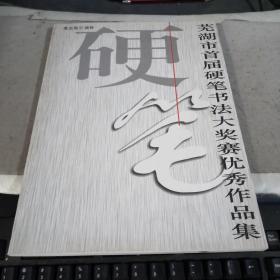 硬笔
芜湖市首届硬笔书法大奖赛优秀作品集